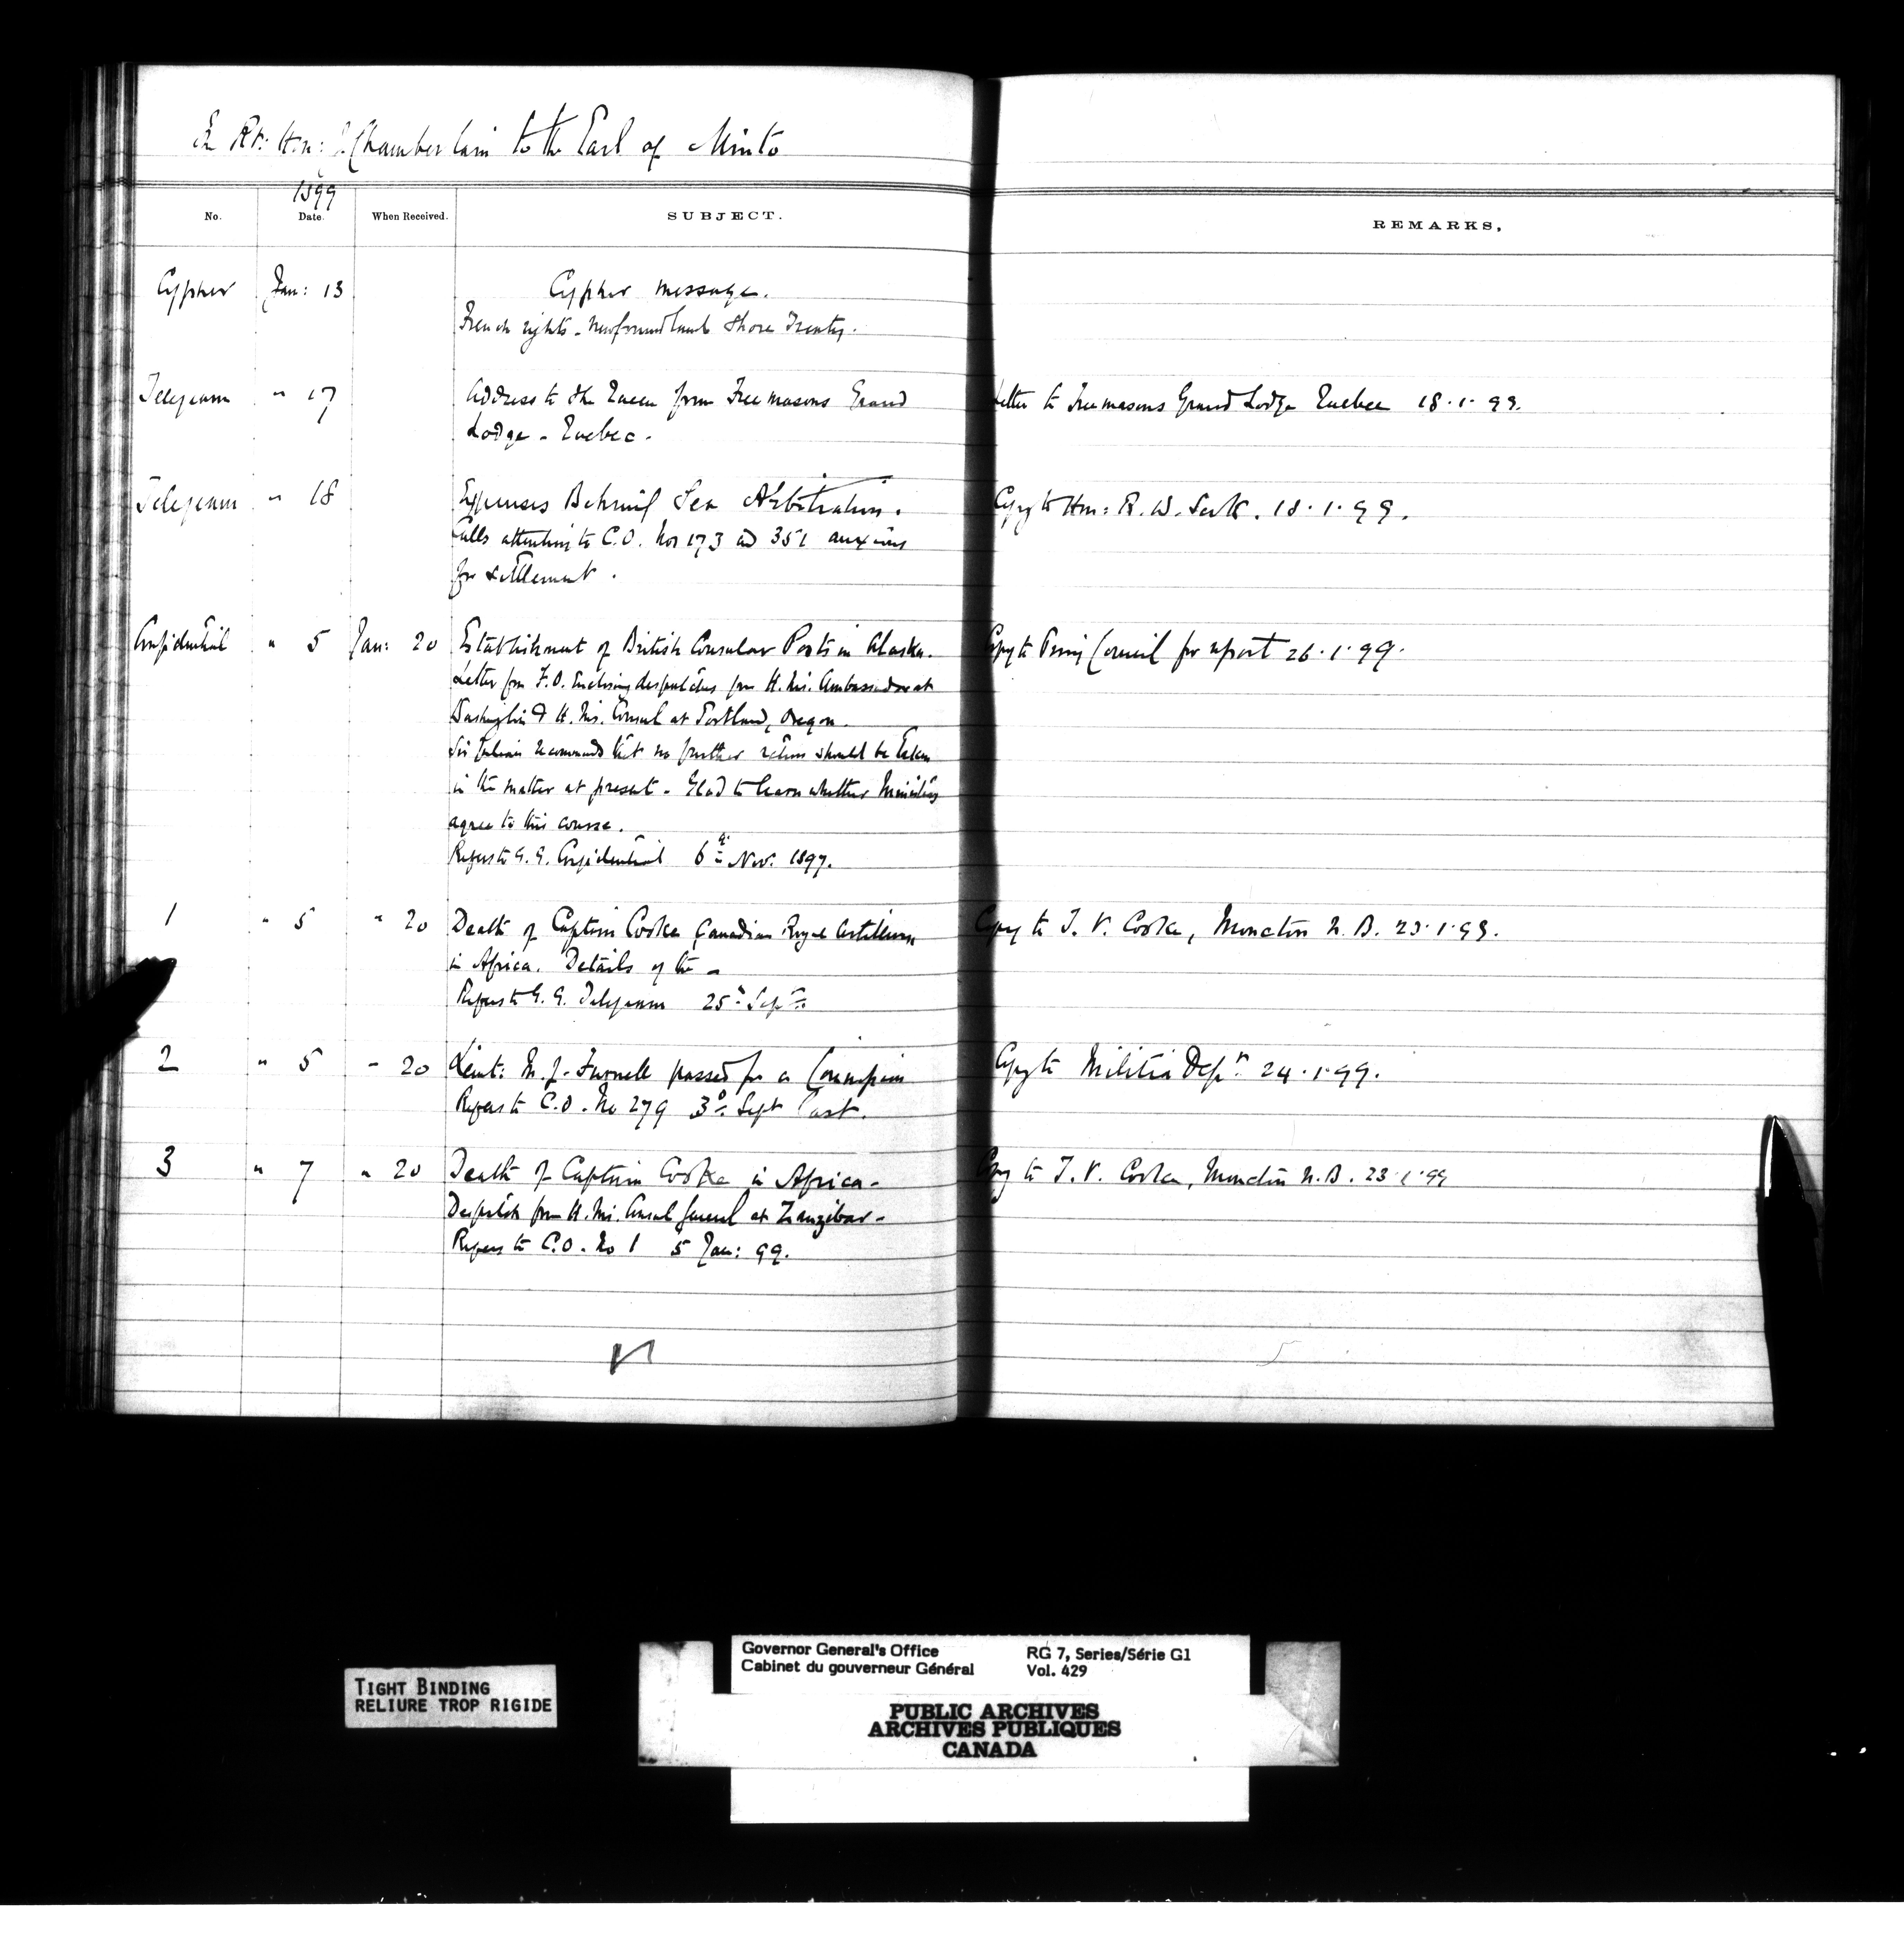 The Rt: Hon: J. Chamberlain to the Earl of Minto
1899
No. Date. When Received. SUBJECT. REMARKS.
Cypher Jan: 13 Cypher message.
French rights - Newfoundland Shore Treaty.
Telegram " 17 Address to the Queen from Freemasons Grand Letter to Freemasons Grand Lodge Quebec 18.1.99.
Lodge - Quebec.
Telegram " 18 Expenses Behring Sea Arbitration. Copy to Hon: R. W. Scott. 18.1.99.
Calls attention to C.O. Nos 173 and 351 anxious
for settlement.
Confidential " 5 Jan: 20 Establishment of British Consular Posts in Alaska. Copy to Privy Council for report 26.1.99.
Letter from F.O. Enclosing despatches from H.M's. Ambassador at
Washington & H.M's. Consul at Portland, Oregon.
Sir Julian recommends that no further action should be taken
in the matter at present. Glad to learn whether Ministers
agree to this course.
Refers to G.G. Confidential 6th Nov: 1897.
1 " 5 " 20 Death of Captain Cooke Canadian Royal Artillery Copy to T. V. Cooke, Moncton N.B. 23.1.99.
in Africa. Details of the -
Refers to G.G. Telegram 25th Septr.
2 " 5 " 20 Lieut: M. J. Furnell passed for a Commission Copy to Militia Dept. 24.1.99.
Refers to C.O. No 279 3d Sept last.
3 " 7 " 20 Death of Captain Cooke in Africa - Copy to T. V. Cooke, Moncton N.B. 23.1.99
Despatch from H.M's. Consul General at Zanzibar -
Refers to C.O. No 1 5 Jan: 99.
TIGHT BINDING
RELIURE TROP RIGIDE
Governor General's Office RG 7, Series/Série G1
Cabinet du gouverneur Général Vol. 429
PUBLIC ARCHIVES
ARCHIVES PUBLIQUES
CANADA